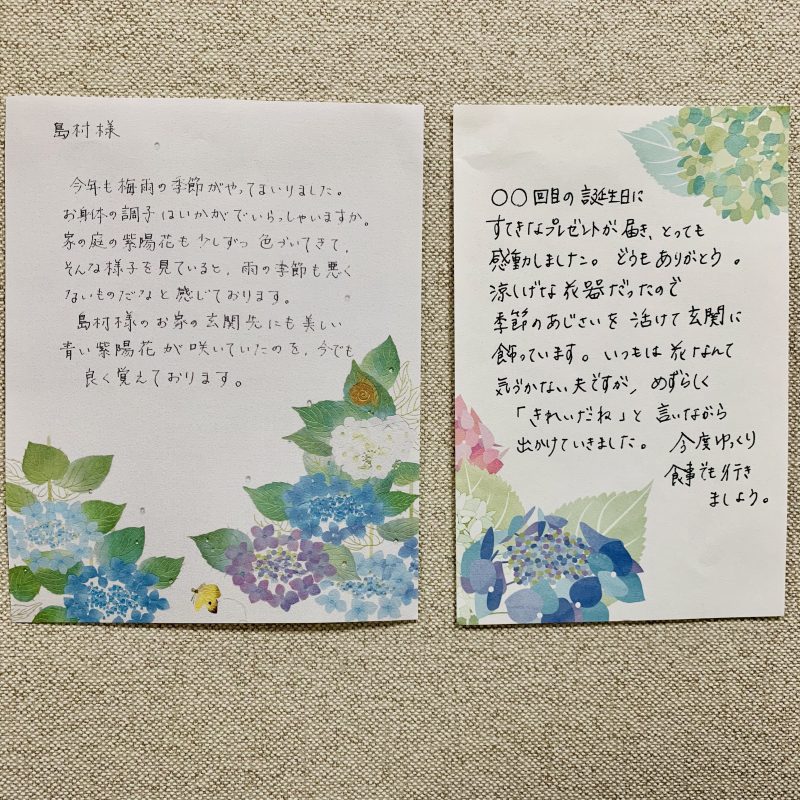 島村様
今年も梅雨の季節がやってまいりました。
お身体の調子はいかがでいらっしゃいますか。
家の庭の紫陽花も少しずつ色づいてきて、
そんな様子を見ていると、雨の季節も悪く
ないものだなと感じております。
島村様のお家の玄関先にも美しい
青い紫陽花が咲いていたのを、今でも
良く覚えております。
〇〇回目の誕生日に
すてきなプレゼントが届き、とっても
感動しました。どうもありがとう。
涼しげな花器だったので
季節のあじさいを活けて玄関に
飾っています。いつもは花なんて
気づかない夫ですが、めずらしく
「きれいだね」と言いながら
出かけていきました。今度ゆっくり
食事でも行き
ましょう。